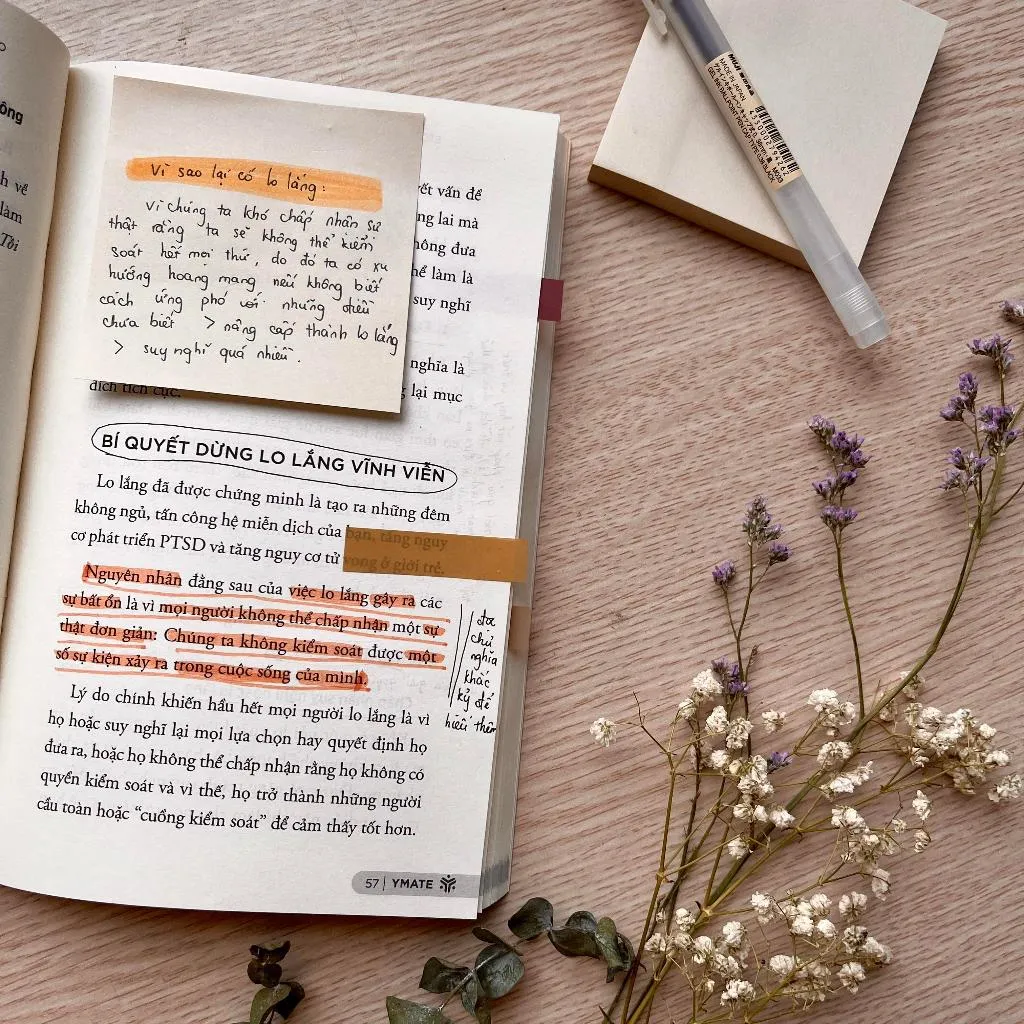 ông
h về
làm
Tôi
Vì sao lại có lo lắng:
Vì chúng ta khó chấp nhận sự
thật rằng ta sẽ không thể kiểm
soát hết mọi thứ, do đó ta có xu
hướng hoang mang nếu không biết
cách ứng phó với những điều
chưa biết > nâng cấp thành lo lắng
> suy nghĩ quá nhiều.
ết vấn đề
ng lai mà
hông đưa
hể làm là
suy nghĩ
nghĩa là
g lại mục
đích tích cực.
BÍ QUYẾT DỪNG LO LẮNG VĨNH VIỄN
Lo lắng đã được chứng minh là tạo ra những đêm
không ngủ, tấn công hệ miễn dịch của bạn, tăng nguy
cơ phát triển PTSD và tăng nguy cơ tử vong ở giới trẻ.
Nguyên nhân đằng sau của việc lo lắng gây ra các
sự bất ổn là vì mọi người không thể chấp nhận một sự
thật đơn giản: Chúng ta không kiểm soát được một
số sự kiện xảy ra trong cuộc sống của mình.
chủ
nghĩa
khắc
kỷ để
hiểu thêm
Lý do chính khiến hầu hết mọi người lo lắng là vì
họ hoặc suy nghĩ lại mọi lựa chọn hay quyết định họ
đưa ra, hoặc họ không thể chấp nhận rằng họ không có
quyền kiểm soát và vì thế, họ trở thành những người
cầu toàn hoặc “cuồng kiểm soát” để cảm thấy tốt hơn.
57 | YMATE
MUJI
MADE IN JAPAN
GEL INK BALLPOINT PEN CAP TYPE 0.38 BLACK